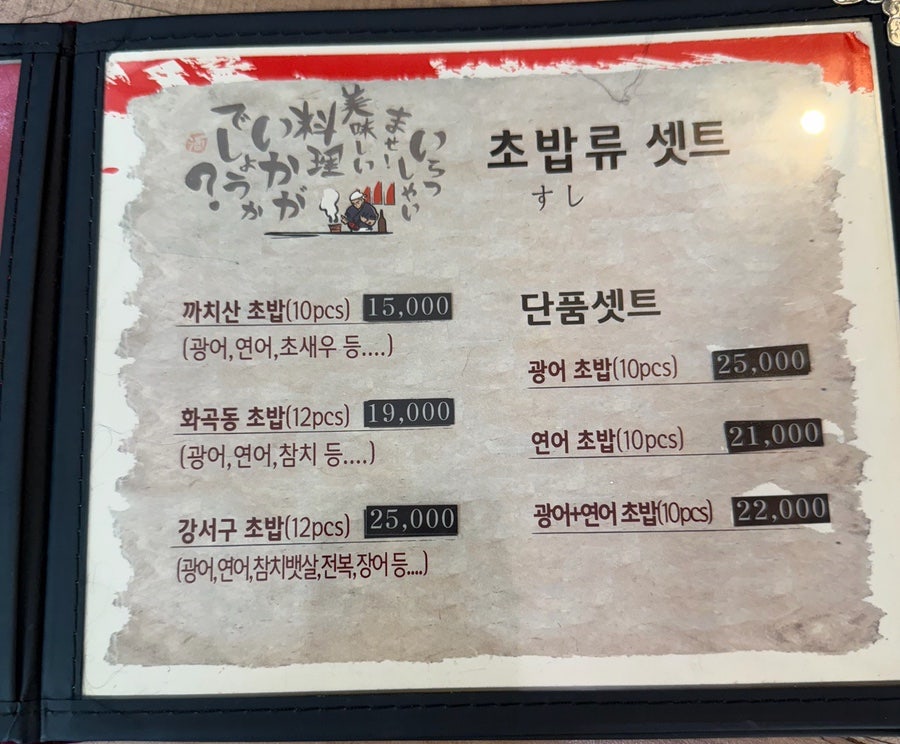 いらっしゃい
ませ！
美味しい
料理
いかが
でしょうか
？
초밥류 셋트
すし
까치산 초밥(10pcs) 15,000
(광어,연어,초새우 등....)
화곡동 초밥(12pcs) 19,000
(광어,연어,참치 등....)
강서구 초밥(12pcs) 25,000
(광어,연어,참치뱃살,전복,장어 등....)
단품셋트
광어 초밥(10pcs) 25,000
연어 초밥(10pcs) 21,000
광어+연어 초밥(10pcs) 22,000